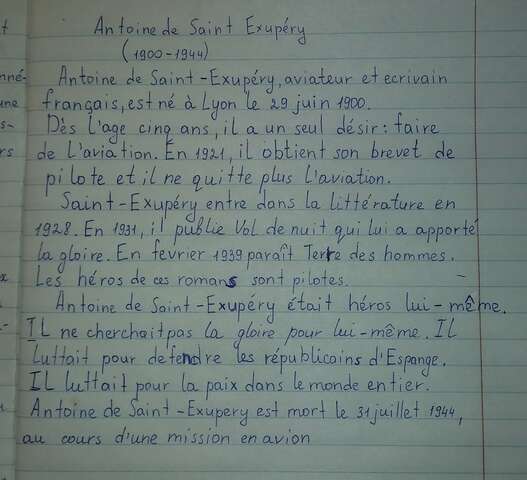 t
Antoine de Saint Exupéry
(1900-1944)
nné-
Antoine de Saint-Exupéry, aviateur et ecrivain
une
français, est né à Lyon le 29 juin 1900.
s-
Dès l'age cinq ans, il a un seul désir: faire
rs
de l'aviation. En 1921, il obtient son brevet de
pilote et il ne quitte plus l'aviation.
Saint-Exupéry entre dans la littérature en
1928. En 1931, il publie Vol de nuit qui lui a apporté
la gloire. En fevrier 1939 paraît Terre des hommes.
Les héros de ces romans sont pilotes.
Antoine de Saint-Exupéry était héros lui-même.
IL ne cherchait pas la gloire pour lui-même. Il
luttait pour defendre les républicains d'Espange.
Il luttait pour la paix dans le monde entier.
Antoine de Saint-Exupery est mort le 31 juillet 1944,
au cours d'une mission en avion